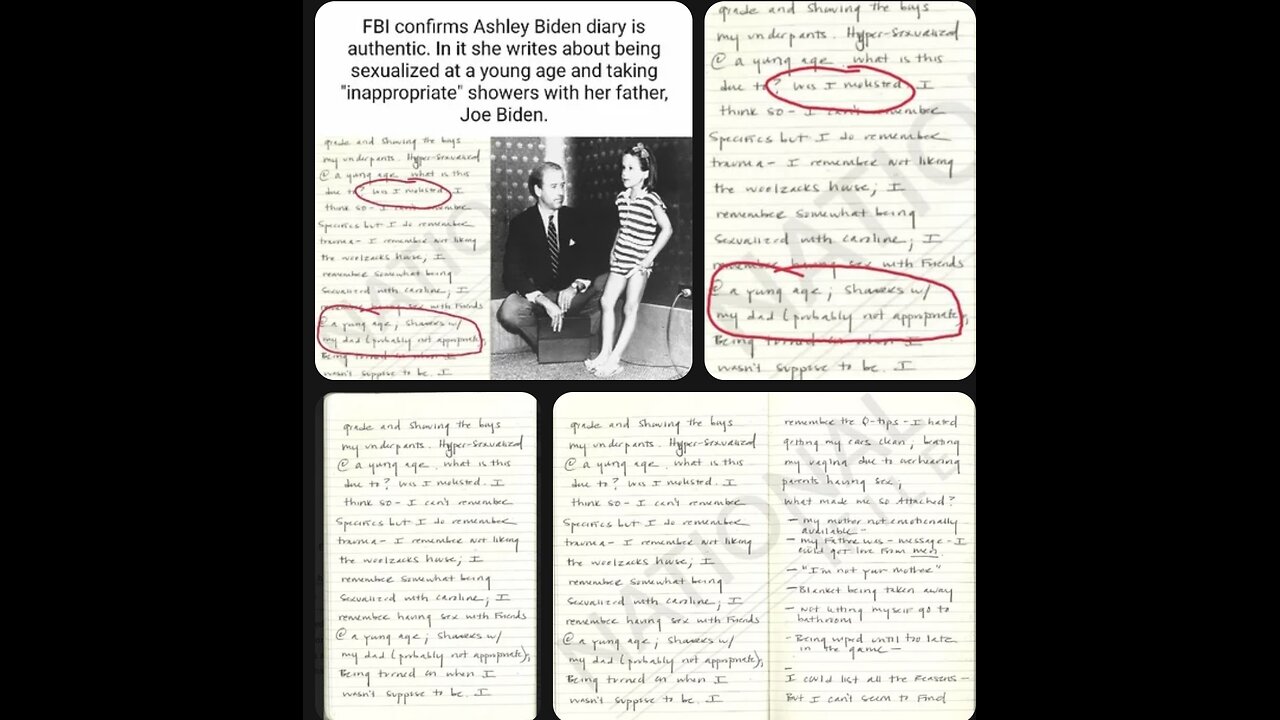 FBI confirms Ashley Biden diary is
authentic. In it she writes about being
sexualized at a young age and taking
"inappropriate" showers with her father,
Joe Biden.
grade and showing the boys
my underpants. Hyper-sexualized
@ a young age. what is this
due to? Was I molested. I
think so - I can't remember
specifics but I do remember
trauma - I remember not liking
the woolzacks house; I
remember somewhat being
sexualized with caroline; I
remember having sex with Friends
@ a young age; showers w/
my dad (probably not appropriate),
Being turned on when I
wasn't suppose to be. I
grade and showing the boys
my underpants. Hyper-sexualized
@ a young age. what is this
due to? Was I molested. I
think so - I can't remember
specifics but I do remember
trauma - I remember not liking
the woolzacks house; I
remember somewhat being
sexualized with caroline; I
remember having sex with Friends
@ a young age; showers w/
my dad (probably not appropriate),
Being turned on when I
wasn't suppose to be. I
grade and showing the boys
my underpants. Hyper-sexualized
@ a young age. what is this
due to? Was I molested. I
think so - I can't remember
specifics but I do remember
trauma - I remember not liking
the woolzacks house; I
remember somewhat being
sexualized with caroline; I
remember having sex with Friends
@ a young age; showers w/
my dad (probably not appropriate),
Being turned on when I
wasn't suppose to be. I
grade and showing the boys
my underpants. Hyper-sexualized
@ a young age. what is this
due to? Was I molested. I
think so - I can't remember
specifics but I do remember
trauma - I remember not liking
the woolzacks house; I
remember somewhat being
sexualized with caroline; I
remember having sex with Friends
@ a young age; showers w/
my dad (probably not appropriate),
Being turned on when I
wasn't suppose to be. I
remember the Q-tips - I hated
getting my ears clean; beating
my vagina due to overhearing
parents having sex;
what made me so Attached?
- my mother not emotionally
available -
- my Father was - message - I
could get love from men.
- "I'm not your mother"
- Blanket being taken away
- not letting myself go to
bathroom
- Being wiped until too late
in the game -
-
I could list all the reasons -
But I can't seem to Find
NATIONAL
FILE